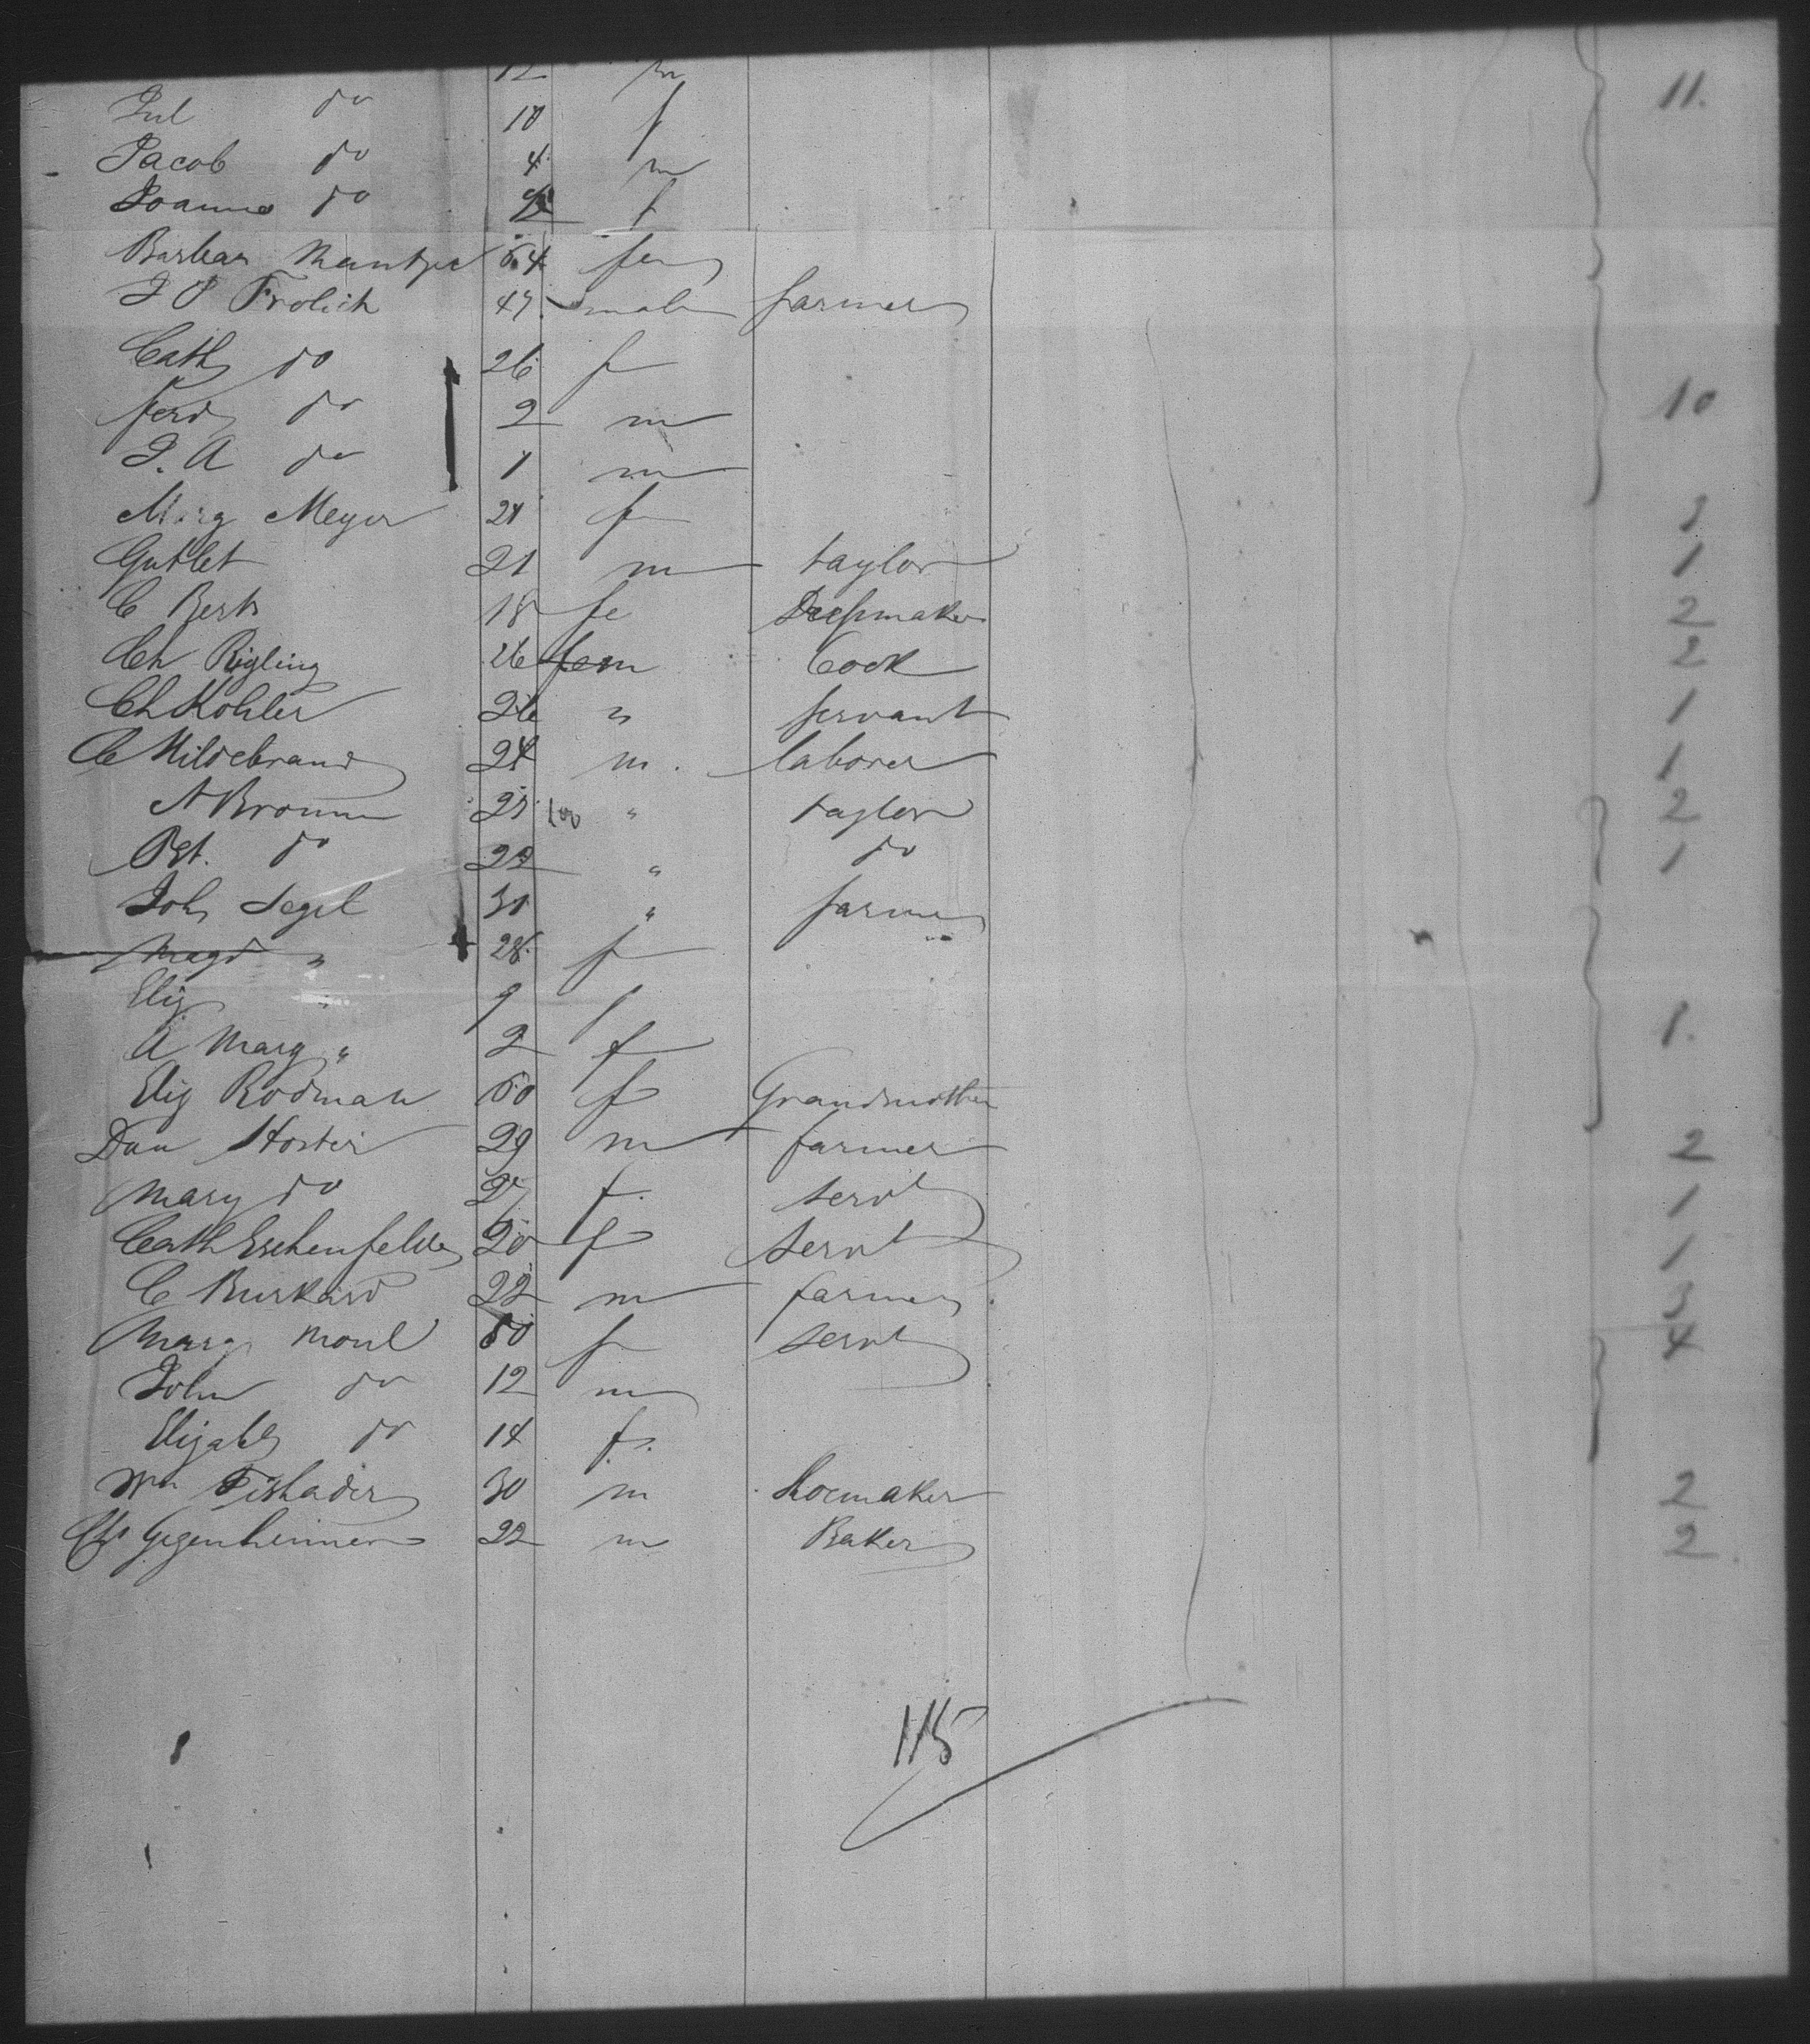 12 m
Jul do 10 f 11.
Jacob do 4 m
Joanna do f
Barbara 54 fem
J P Frolich 47 male farmer
Cath do 26 f
Ferd do 2 m 10
J. A do 1 m
Marg Meyer 21 fe 3
Gutlet 21 m taylor 1
C Berts 18 fe Dressmaker 2
Ch Rigling 26 fem Cook 2
Ch Kohler 26 " servant 1
C Hildebrand 24 m. laborer 1
A Bronn 100 " taylor 2
Pet. do " do 1
Joh Segel 31 " farmer
Magd " 28 f
Eliz " 9 f
A Marg " 2 f 8.
Eliz Rodman 60 f Grandmother
Dan Hoster 29 m farmer 2
Mary do 27 f. servt 1
Cath Eschenfelder 20 f Servt 1
C Burkard 22 m farmer 3
Marg Moul 50 f servt 4
John do 12 m
Elizab do 14 f.
Wm Fishader 30 m Shoemaker 2
Chs Gegenheimer 22 m Baker 2
115